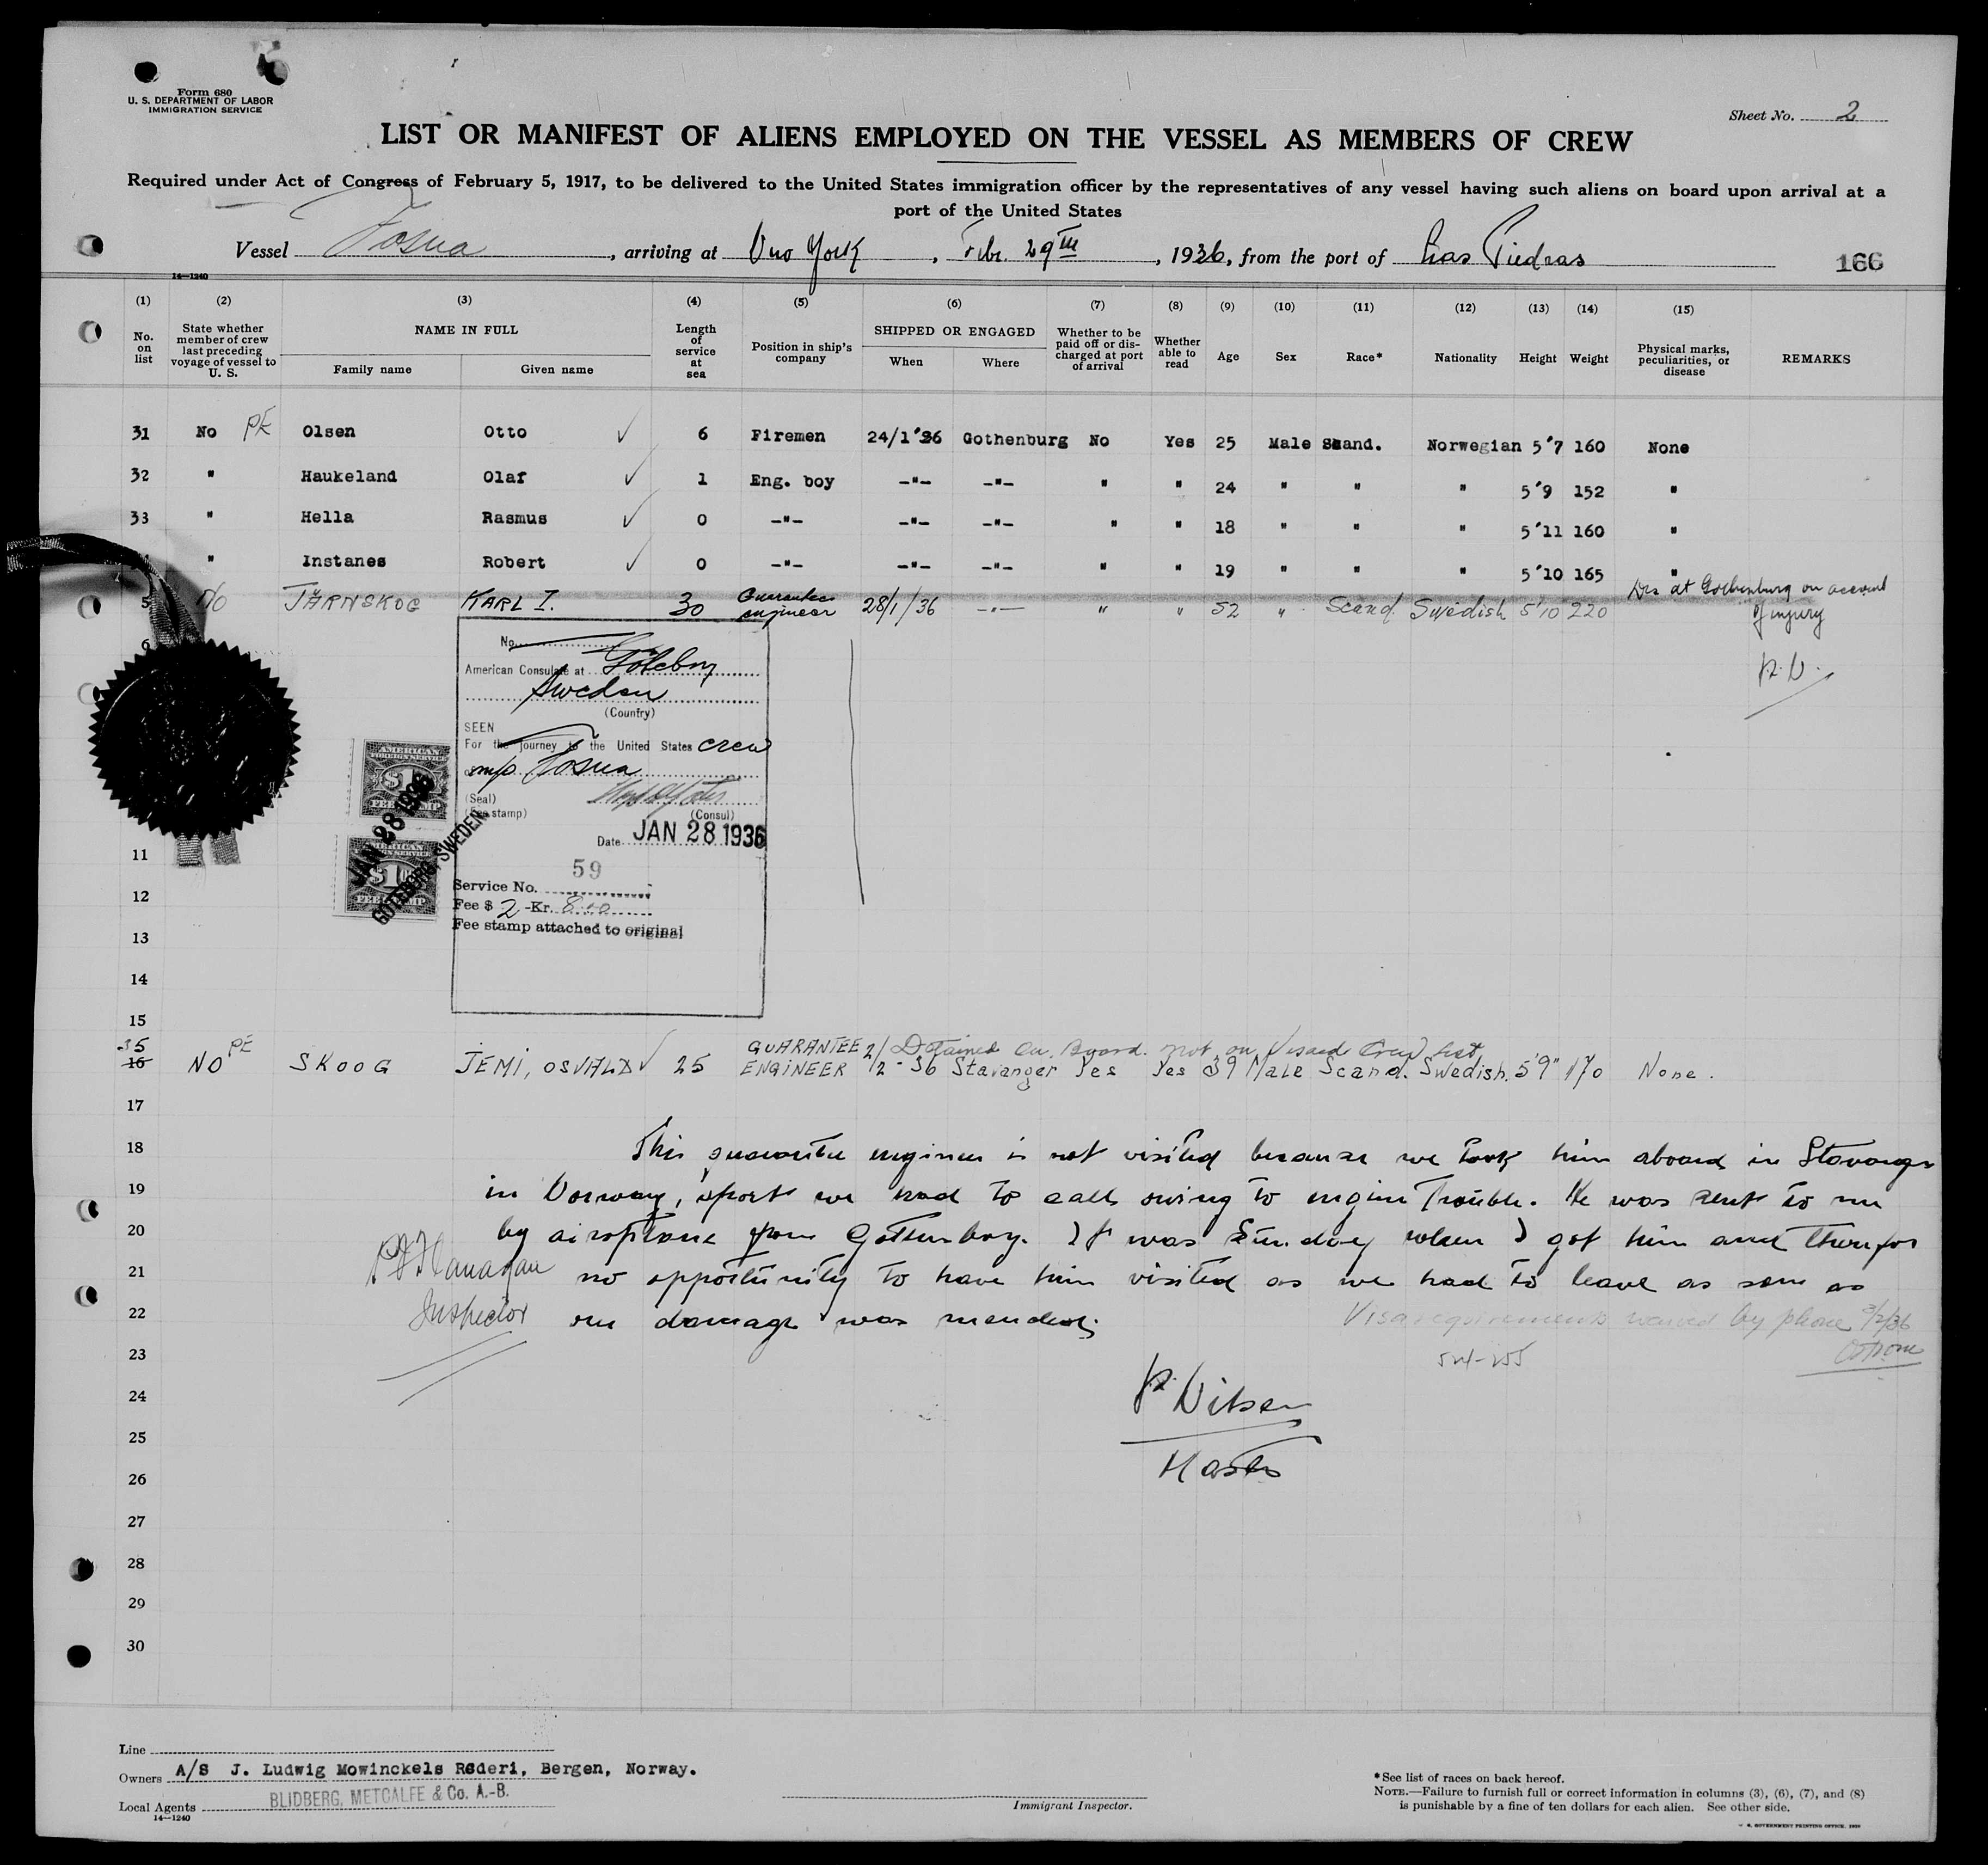 Form 680
U. S. DEPARTMENT OF LABOR
IMMIGRATION SERVICE
Sheet No. 2
LIST OR MANIFEST OF ALIENS EMPLOYED ON THE VESSEL AS MEMBERS OF CREW
Required under Act of Congress of February 5, 1917, to be delivered to the United States immigration officer by the representatives of any vessel having such aliens on board upon arrival at a
port of the United States
Vessel Tosca, arriving at New York, Febr. 29th, 1936, from the port of Las Piedras
166
14—1240
(1) (2) (3) (4) (5) (6) (7) (8) (9) (10) (11) (12) (13) (14) (15)
No. on list
State whether member of crew last preceding voyage of vessel to U. S.
NAME IN FULL
Family name Given name
Length of service at sea
Position in ship's company
SHIPPED OR ENGAGED
When Where
Whether to be paid off or discharged at port of arrival
Whether able to read
Age Sex Race* Nationality Height Weight
Physical marks, peculiarities, or disease
REMARKS
31 No PE Olsen Otto ✓ 6 Firemen 24/1'36 Gothenburg No Yes 25 Male Skand. Norwegian 5'7 160 None
32 " Haukeland Olaf ✓ 1 Eng. boy -"- -"- " " 24 " " " 5'9 152 "
33 " Hella Rasmus ✓ 0 -"- -"- -"- " " 18 " " " 5'11 160 "
" Instanes Robert ✓ 0 -"- -"- -"- " " 19 " " " 5'10 165 "
5 No JÄRNSKOG KARL I. 30 Guarantee engineer 28/1/36 -"- " " 52 " Scand Swedish 5'10 220
Dis at Gothenburg on account
of injury
P.N.
6
No.
American Consulate at Göteborg
Sweden
(Country)
SEEN
For the journey to the United States crew
of m/s Tosca
(Seal)
(Fee stamp)
(Consul)
Date JAN 28 1936
59
Service No.
Fee $ 2 -Kr. 8.00
Fee stamp attached to original
AMERICAN FOREIGN SERVICE
$1
FEE STAMP
AMERICAN FOREIGN SERVICE
$1.00
FEE STAMP
JAN 28 1936
GOTEBORG, SWEDEN
11
12
13
14
15
Detained on Board. not on Visaed Crew list
35 16 NO PE SKOOG JEMI, OSVALD ✓ 25 GUARANTEE ENGINEER 2/2-36 Stavanger Yes Yes 39 Male Scand. Swedish. 5'9" 170 None.
17
18 This guarantee engineer is not visited because we took him aboard in Stavanger
19 in Norway, port we had to call owing to engine trouble. He was sent to me
20 by airoplane from Gothenburg. It was Sunday when I got him and therefor
21 no opportunity to have him visited as we had to leave as soon as
22 our damage was mended.
Flanagan
Inspector
Visa requirements waived by phone 3/2/36
23
24 P. Nilsen
25
26 Master
27
28
29
30
Line
Owners A/S J. Ludwig Mowinckels Rederi, Bergen, Norway.
Local Agents BLIDBERG, METCALFE & Co. A.-B.
14—1240
Immigrant Inspector.
*See list of races on back hereof.
NOTE.—Failure to furnish full or correct information in columns (3), (6), (7), and (8)
is punishable by a fine of ten dollars for each alien. See other side.